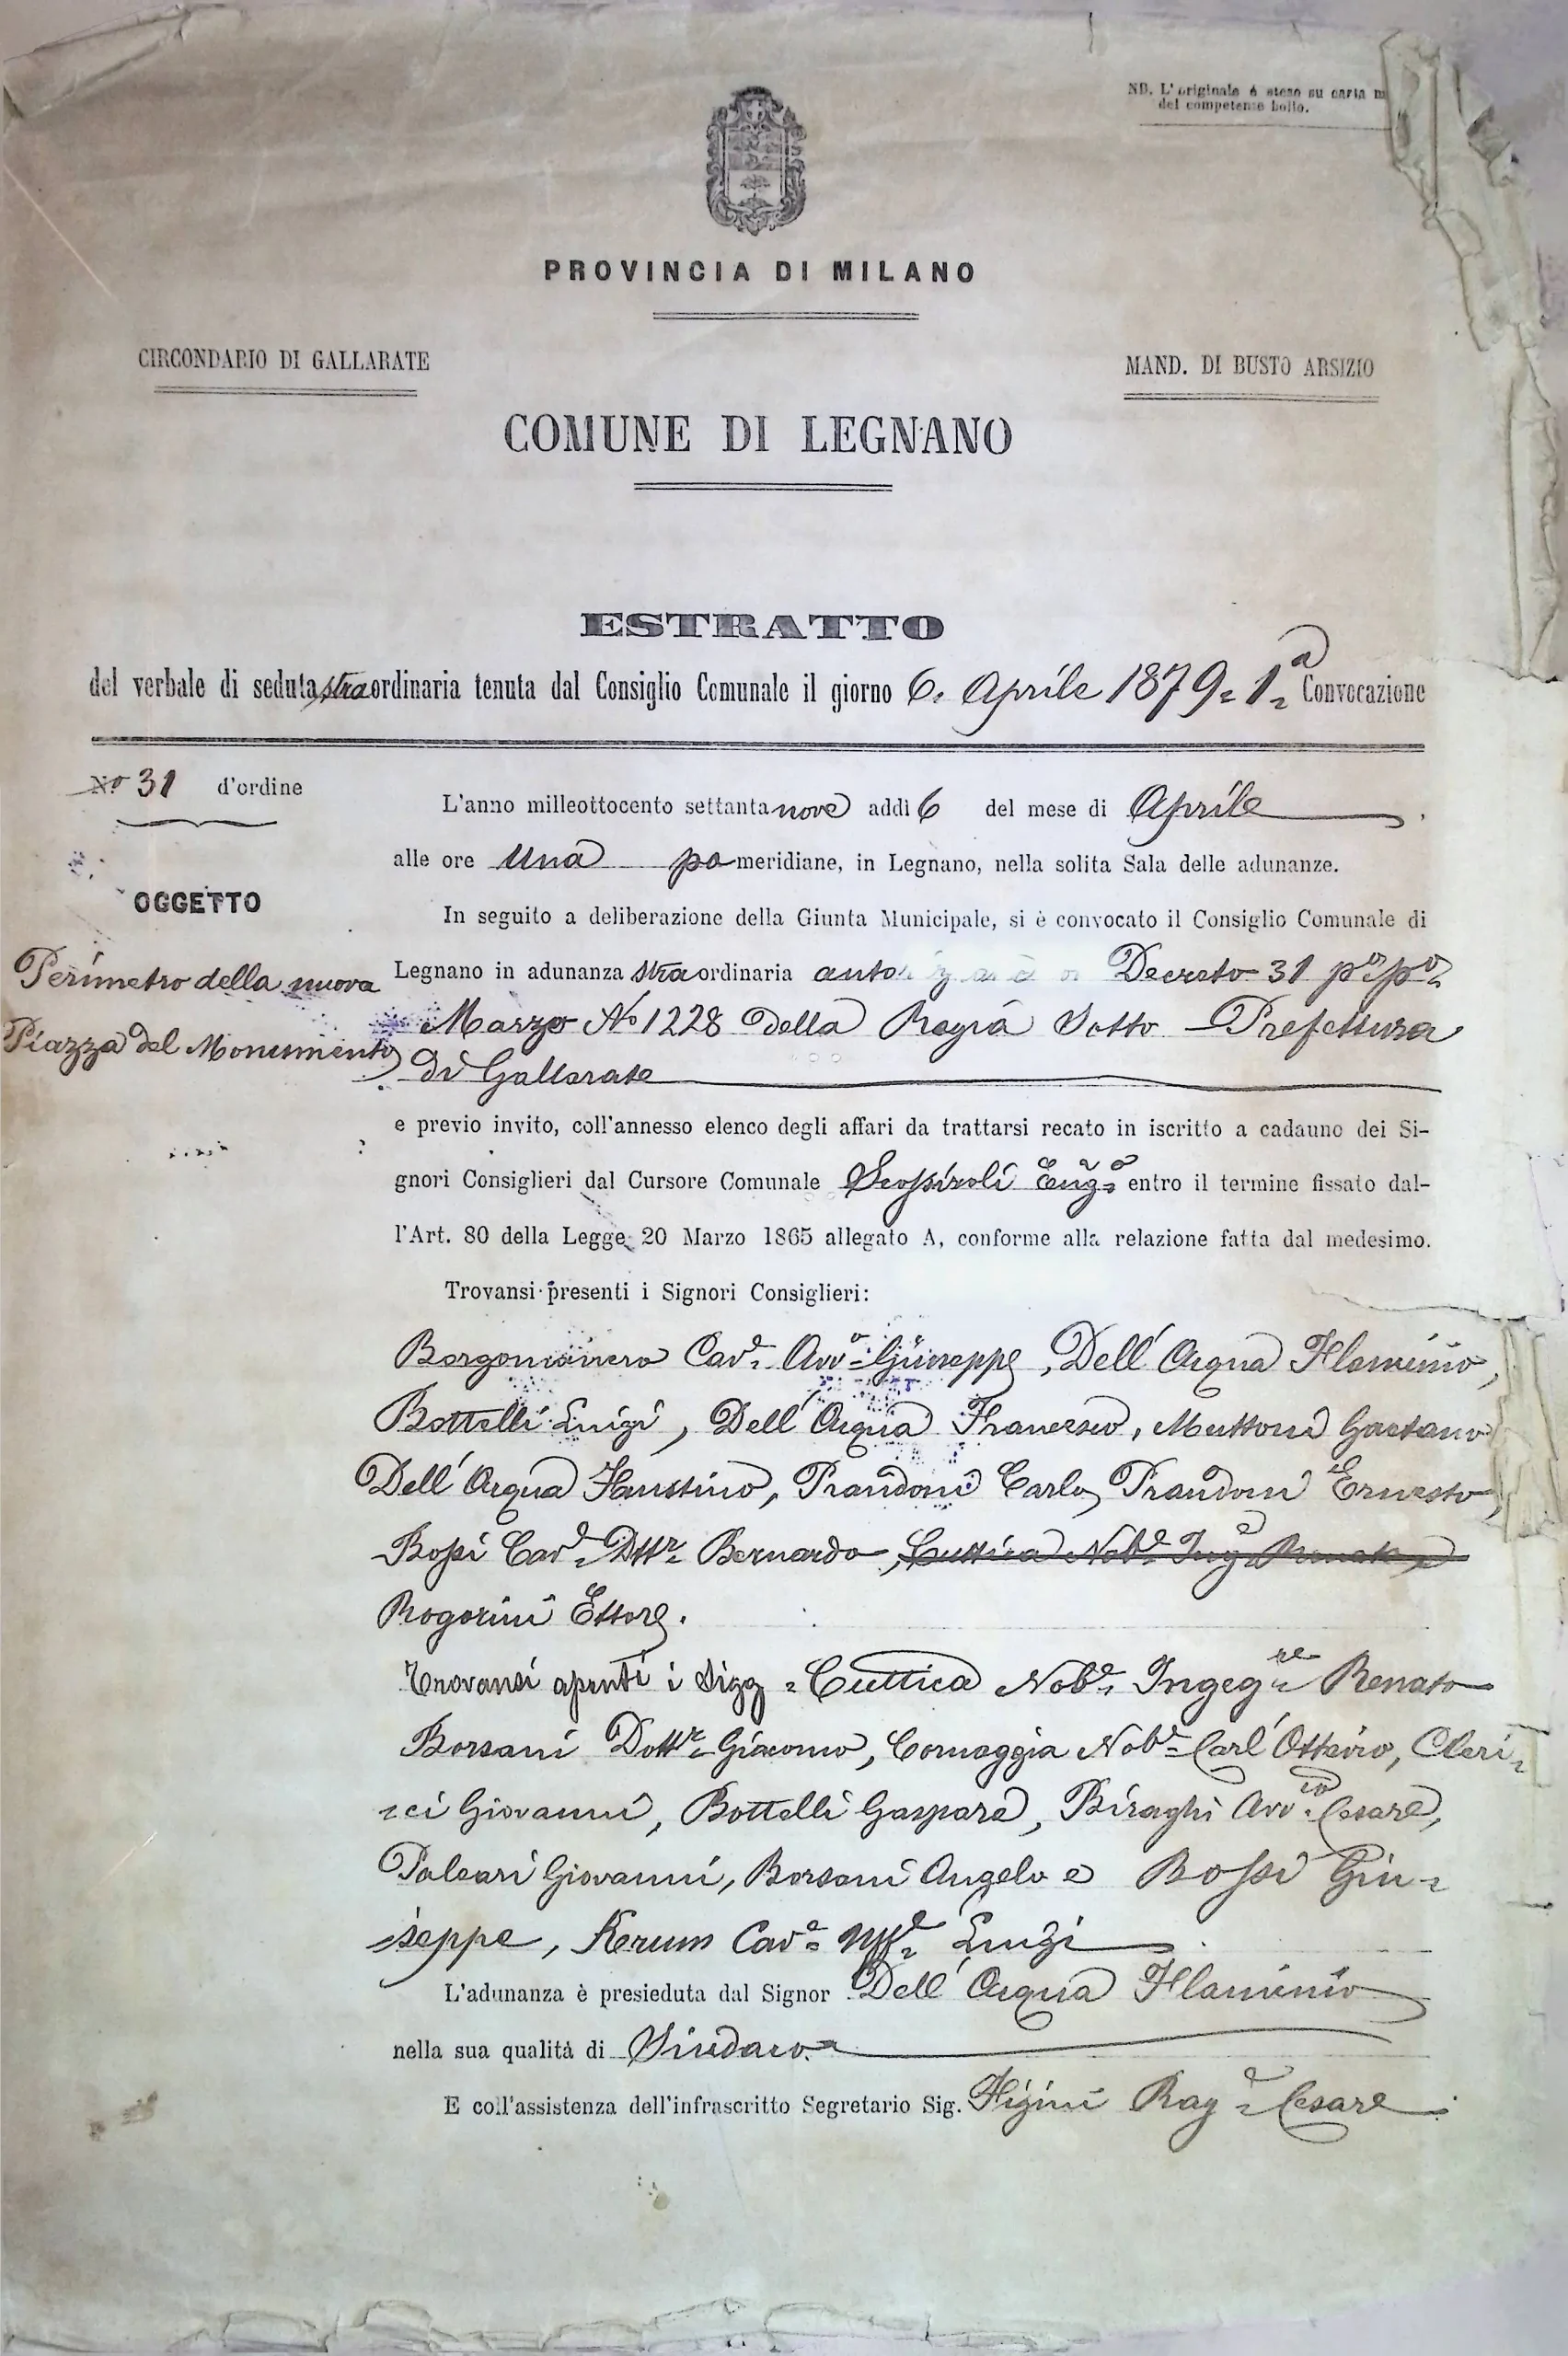 NB. L'originale è steso su carta
del competente bollo.
PROVINCIA DI MILANO
CIRCONDARIO DI GALLARATE
MAND. DI BUSTO ARSIZIO
COMUNE DI LEGNANO
ESTRATTO
del verbale di seduta straordinaria tenuta dal Consiglio Comunale il giorno 6. Aprile 1879. 1.a Convocazione
No 31 d'ordine
OGGETTO
Perimetro della nuova
Piazza del Monumento
L'anno milleottocento settantanove addì 6 del mese di Aprile
alle ore una pomeridiane, in Legnano, nella solita Sala delle adunanze.
In seguito a deliberazione della Giunta Municipale, si è convocato il Consiglio Comunale di
Legnano in adunanza straordinaria Decreto 31 p.o p.o
Marzo No 1228 della Regia Sotto Prefettura
di Gallarate
e previo invito, coll'annesso elenco degli affari da trattarsi recato in iscritto a cadauno dei Si-
gnori Consiglieri dal Cursore Comunale entro il termine fissato dal-
l'Art. 80 della Legge 20 Marzo 1865 allegato A, conforme alla relazione fatta dal medesimo.
Trovansi presenti i Signori Consiglieri:
Borgomanero Cav.e Avv.o Giuseppe, Dell'Acqua Flaminio,
Bottelli Luigi, Dell'Acqua Francesco, Muttoni Gaetano
Dell'Acqua Faustino, Prandoni Carlo, Prandoni Ernesto,
Bossi Cav.e Dttr. Bernardo, Cuttica Nob.e Ing.e Renato,
Rogorini Ettore.
Trovansi assenti i Sigg. Cuttica Nob.e Ingeg.re Renato
Borsani Dott.r Giacomo, Cornaggia Nob.e Carl'Ottavio, Cleri-
-ci Giovanni, Bottelli Gaspare, Biraghi Avv.to Cesare,
Paleari Giovanni, Borsani Angelo e Bossi Giu-
-seppe, Krumm Cav.e Uff.e Luigi
L'adunanza è presieduta dal Signor Dell'Acqua Flaminio
nella sua qualità di Sindaco.
E coll'assistenza dell'infrascritto Segretario Sig. Figini Rag.e Cesare.